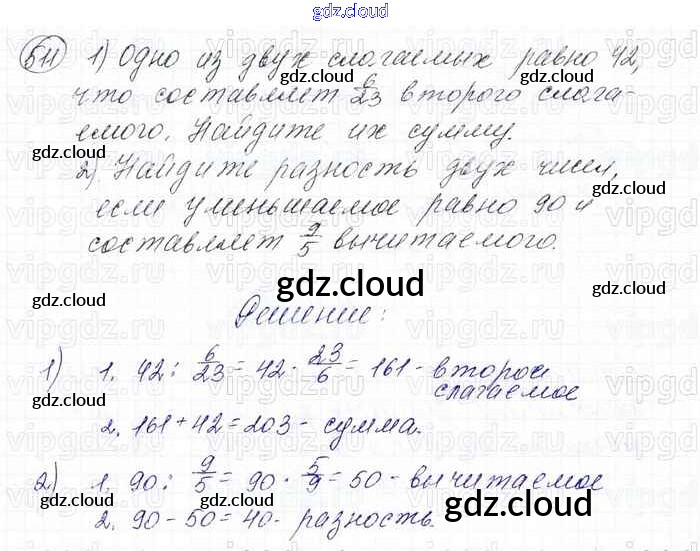 gdz.cloud
511 1) Одно из двух слагаемых равно 42,
что составляет 6/23 второго слага-
емого. Найдите их сумму.
2) Найдите разность двух чисел,
если уменьшаемое равно 90 и
составляет 9/5 вычитаемого.
Решение:
1) 1. 42 : 6/23 = 42 · 23/6 = 161 - второе
слагаемое
2. 161 + 42 = 203 - сумма.
2) 1. 90 : 9/5 = 90 · 5/9 = 50 - вычитаемое
2. 90 - 50 = 40 - разность.
gdz.cloud
gdz.cloud
gdz.cloud
gdz.cloud
gdz.cloud
gdz.cloud
gdz.cloud
gdz.cloud
gdz.cloud
gdz.cloud
gdz.cloud
gdz.cloud
gdz.cloud